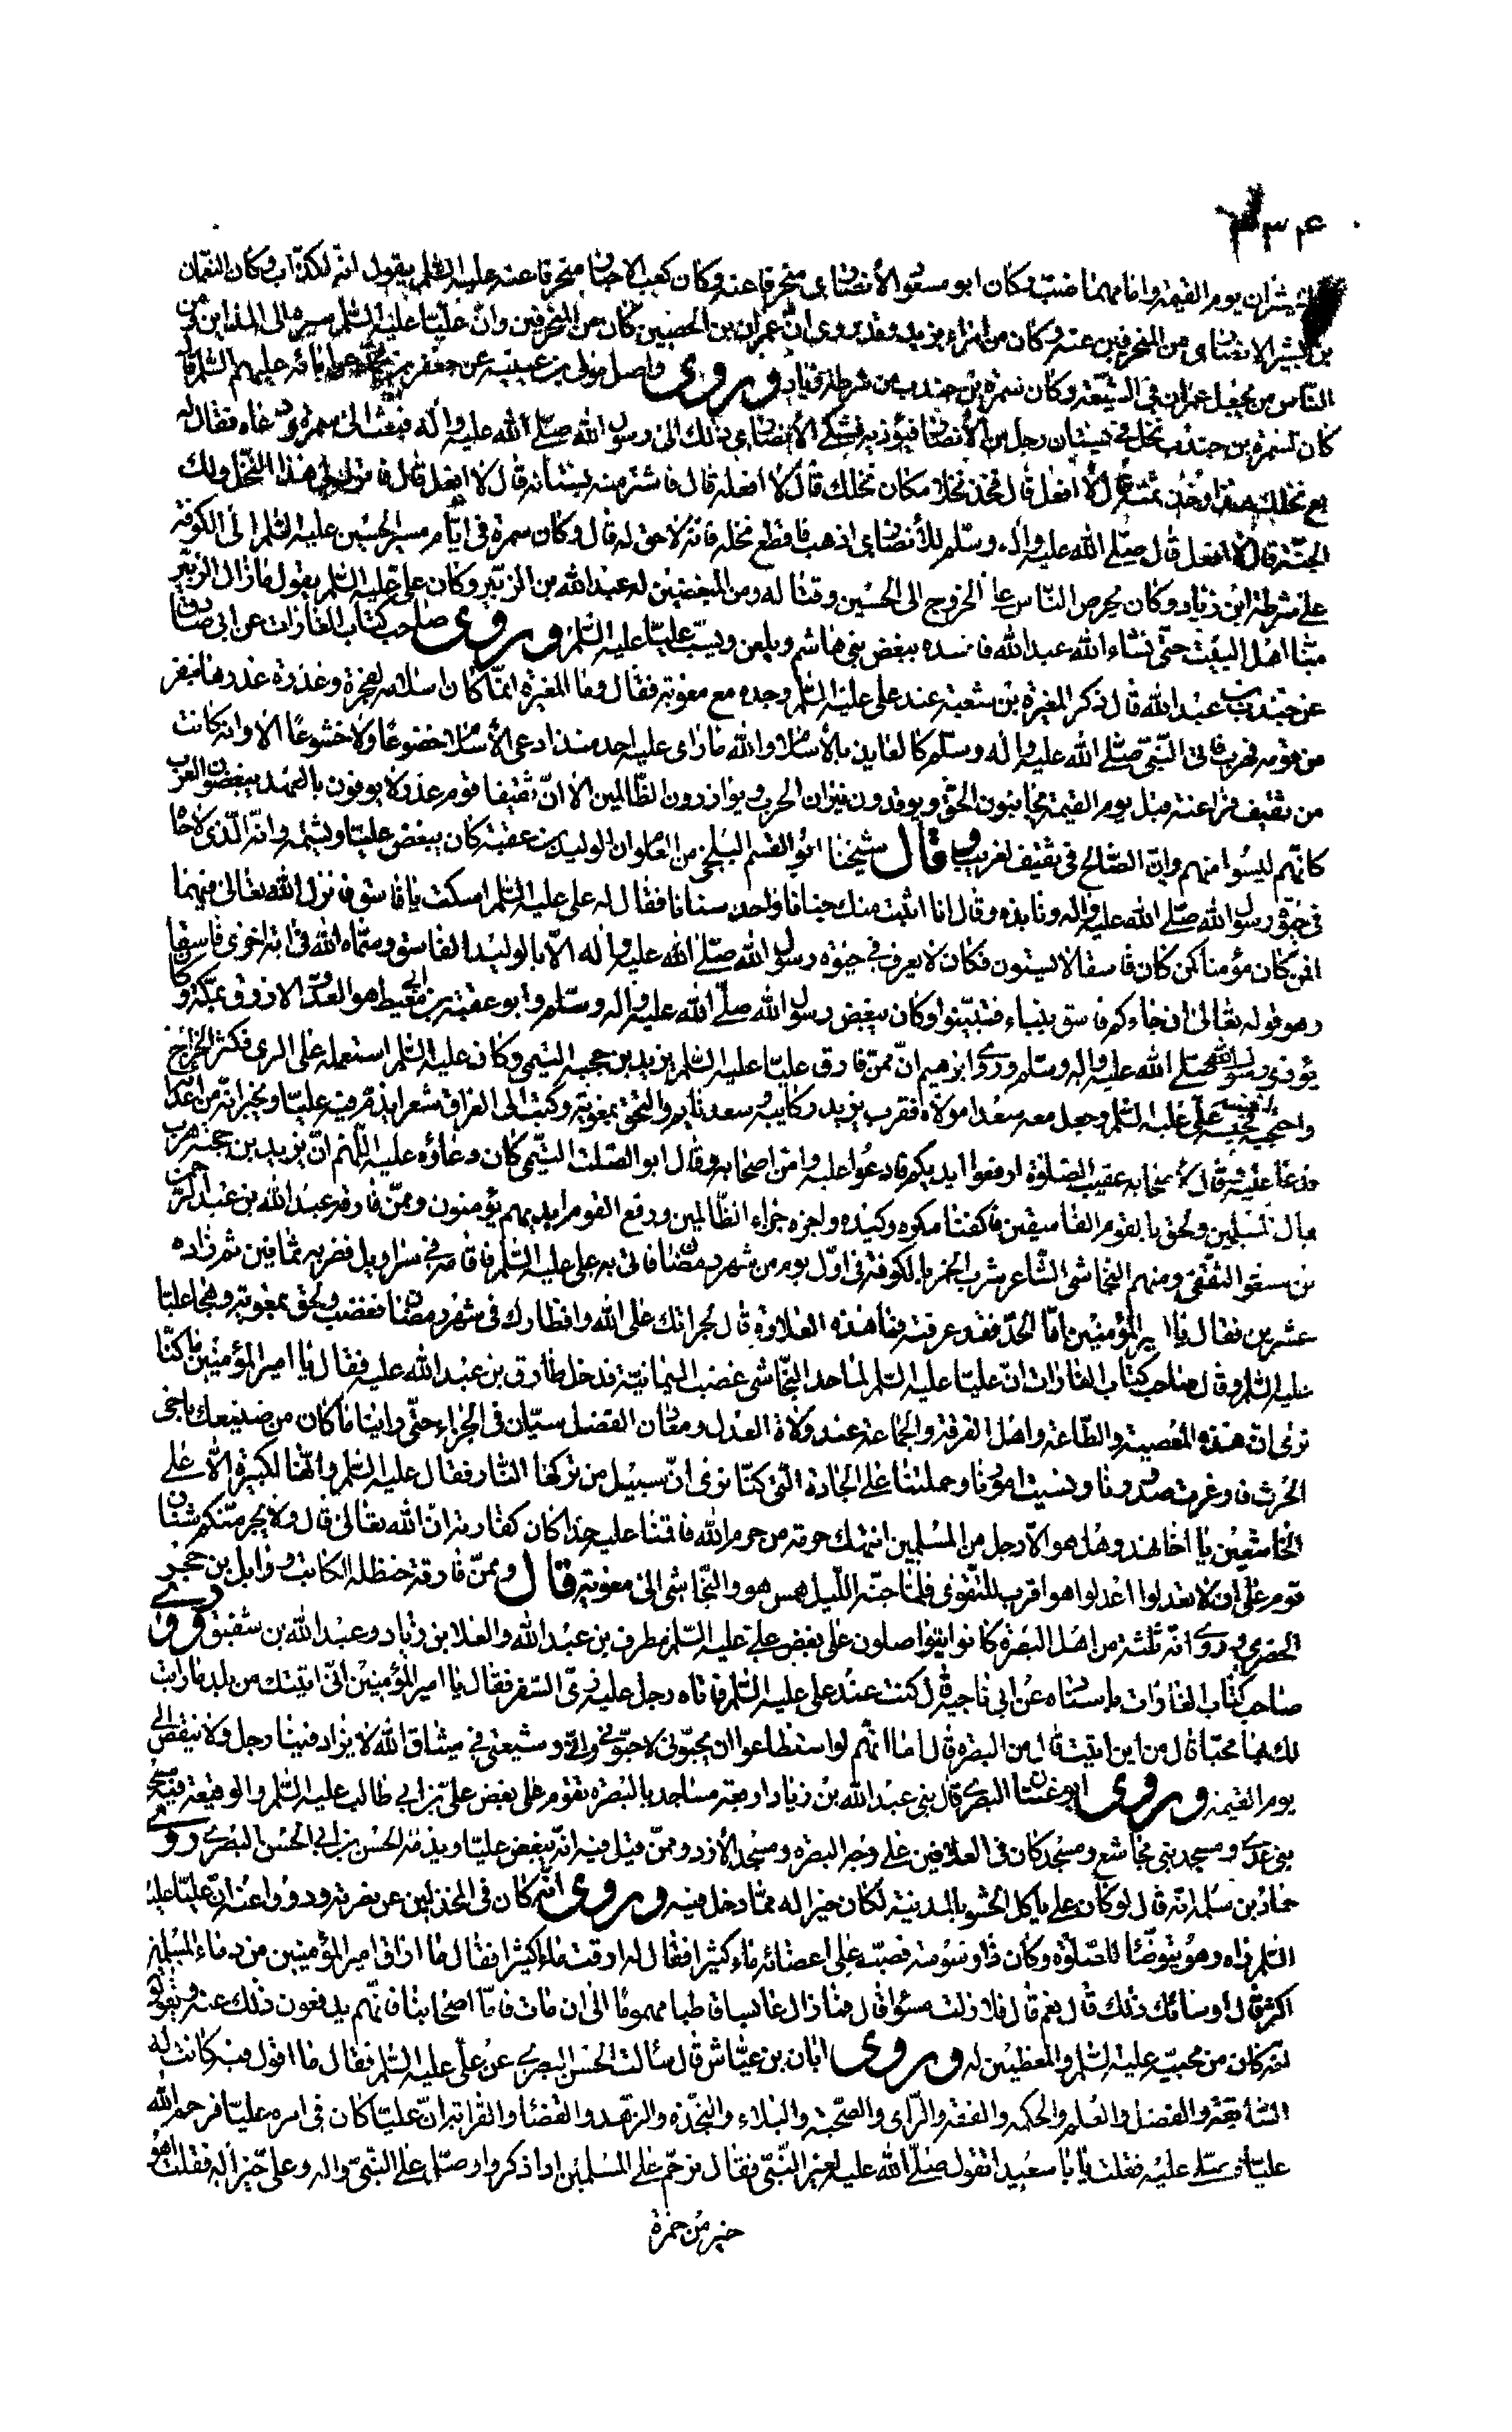 ٣٣۴
بن بشير الانصارى من المنحرفين عنه وكان من امراء يزيد وقد روى انّ عمران بن الحصين كان من المنحرفين وانّ عليّا عليه السّلم سيره الى المداين ومن
الناس من يجعل عمران فى الشيعة وكان سمرة بن جندب من شرطة زياد وروى واصل مولى بن عيينه عن جعفر بن محمّد عن ابائه عليهم السّلم قال
كان لسمرة بن جندب نخل فى بستان رجل من الأنصار فيؤذيه فشكى الأنصارى ذلك الى رسول الله صلّى الله عليه واله فبعث الى سمرة ودعاه فقال له
بع نخلك هذا وخذ ثمنه قال لا افعل قال فخذ نخلا مكان نخلك قال لا افعله قال فاشتر منه بستانه قال لا افعل قال فاترك لى هذا النّخل ولك
الجنّة قال لا افعل قال صلّى الله عليه واله وسلّم للأنصارى اذهب فاقطع نخله فانّه لا حق له قال وكان سمرة فى ايّام مسير الحسين عليه السّلم الى الكوفة
على شرطة ابن زياد وكان يحرص النّاس على الخروج الى الحسين وقتاله ومن المبغضين له عبد الله من الزبّير وكان علىّ عليه السّلم يقول مازال الزبّير
منّا اهل البيت حتّى نشاء الله عبد الله فافسده ببغض بنى هاشم ويلعن ويسبّ عليّا عليه السّلم وروى صاحب كتاب الغارات عن ابى صادق
عن جندب بن عبد الله قال ذكر المغيرة بن شعبة عند على عليه السّلم وجده مع معوية فقال وما المغيرة انّما كان اسلامه لفجرة وغدرة غدرها بنفر
من قومه فهرب فاتى النّبىّ صلّى الله عليه واله وسلّم كالعايذ بالأسلام والله ما راى عليه احد منذ ادعى الأسلام خضوعًا ولا خشوعًا الا وانه كانت
من ثقيف فراعنة قبل يوم القيمة يجانبون الحقّ ويوقدون نيران الحرب ويوازرون الظّالمين الا انّ ثقيفا قوم غدر لا يوفون بالعهد يبغضون العرب
كانّهم ليسوا منهم وانّ الصّالح فى ثقيف لغريب وقال شيخنا ابو القسم البلخى من المعلوم ان الوليد بن عقبة كان يبغض عليّا ويشتمه وانّه الّذى لاحاه
فى حيوة رسول الله صلّى الله عليه واله ونابذه وقال انا اثبت منك جنانا واحد سنانا فقال له على عليه السّلم اسكت يا فاسق فانزل الله تعالى فيهما
افمن كان مؤمنا كمن كان فاسقا لا يستون فكان لا يعرف فى حيوة رسول الله صلّى الله عليه واله الّا بالوليد الفاسق وسمّاه الله فى اية اخرى فاسقا
وهو قوله تعالى ان جاءكم فاسق بنباء فتبيّنوا وكان يبغض رسول الله صلّى الله عليه واله وسلّم وابو عقبة بن ابى معيط هو العدوّ الازرق بمكّة وكان
يؤذى رسول الله صلّى الله عليه واله وسلّم وروى ابراهيم انّ ممّن فارق عليّا عليه السّلم يزيد بن حجيه التيمى وكان عليه السّلم استعمله على الرى فكثر الخراج
واحتجبه لنفسه فحبسه علىّ عليه السّلم وجعل معه سعدا مولاه فقرب يزيد ركايبه وسعد نايم والتحق بمعوية وكتب الى العراق شعرا يذمّ فيه عليّا ويخبر انّه من اعدائه
فدعا عليه قال لأصحابه عقيب الصّلوة ارفعوا ايديكم فادعوا عليه وامن اصحابه وقال ابو الصّلت التيّمى كان دعاؤه عليه اللّهم انّ يزيد بن حجيه هرب
بمال المسلمين ولحق بالقوم الفاسقين فاكفنا مكره وكيده واجزه جزاء الظّالمين ورفع القوم ايديهم يؤمنون وممّن فارقه عبد الله بن عبد الرّحمن
بن مسعود الثقفى ومنهم النجاشى الشّاعر شرب الخمر بالكوفة فى اوّل يوم من شهر رمضان فاتى به على عليه السّلم فاقامه فى سراويل فضربه ثمانين ثم زاده
عشرين فقال يا امير المؤمنين امّا الحدّ فقد عرفته فما هذه العلاوة قال لجرائك على الله وافطارك فى شهر رمضان فغضب ولحق بمعوية وهجا عليّا
عليه السّلم وقال صاحب كتاب الغارات انّ عليّا عليه السّلم لمّا حد النّجاشى غضب اليمانيّة فدخل طارق بن عبد الله عليه فقال يا امير المؤمنين ما كنّا
نرى ان هذه المعصية والطّاعة واهل الفرقة والجماعة عند ولاة العدل ومعادن الفضل سيّان فى الجزاء حتّى راينا ما كان من صنيعك باخى
الحرث فاوغرت صدورنا وشتت امورنا وحملتنا على الجادة الّتى كنّا نرى انّ سبيل من تركها النّار فقال عليه السّلم وانّها لكبيرة الّا على
الخاشعين يا اخا نهد وهل هو الّا رجل من المسلمين انتهك حرمة من حرم الله فاقمنا عليه حدّا كان كفّارته انّ الله تعالى قال ولا يجرمنّكم شنان
قوم على ان لا تعدلوا اعدلوا هو اقرب للتّقوى فلمّا جنّه اللّيل همس هو والنّجاشى الى معوية قال وممّن فارقه حنظله الكاتب ووايل بن حجر
الحضرمى وروى انّه ثلثة من اهل البصرة كانوا يتواصلون على بغض على عليه السّلم مطرف بن عبد الله والعلا بن زياد وعبد الله بن شقيق وروى
صاحب كتاب الغارات باسناه عن ابى ناجية قال كنت عند على عليه السّلم فاتاه رجل عليه زىّ السّفر فقال يا امير المؤمنين انّى اتيتك من بلد ما رايت
لك بها محبّا قال من اين اتيت قال من البصره قال اما انّهم لو استطاعوا ان يحبّونى لاحبّونى وانّى وشيعتى فى ميثاق الله لا يزاد فينا رجل ولا ينقص الى
يوم القيمة وروى ابو غسّان البصرى قال بنى عبد الله بن زياد اربعة مساجد بالبصرة تقوم على بغض علىّ بن ابى طالب عليه السّلم والوقيعة فيه مسجد
بنى عدى ومسجد بنى مجاشع ومسجد كان فى العلافين على وجه البصرة ومسجد الأزد وممّن قيل فيه انّه يبغض عليّا ويذمّه الحسن بن ابى الحسن البصرى وروى
حماد بن سلمه انّه قال لو كان على ياكل الحشو بالمدينة لكان خيرا له ممّا دخل فيه وروى انّه كان فى المخذلين عن نصرته ورووا عنه انّ عليّا عليه
السّلم راه وهو يتوضّأ للصّلوة وكان ذا وسوسة فصبّ على اعضائه ماء كثيرا فقال له ارقت ماء كثيرا فقال ما اراق امير المؤمنين من دماء المسلمين
اكثر قال اوساءك ذلك قال نعم قال فلا زلت مسوءا قال فما زال عابسا قاطبا مهمومًا الى ان مات فامّا اصحابنا فانّهم يدفعون ذلك عنه ويقولون
انّه كان من محبىّ عليه السّلم والمعظمين له وروى ابان بن عيّاش قال سالت الحسن البصرى عن علىّ عليه السّلم فقال ما اقول فيه كانت له
السّابقة والفضل والعلم والحكمه والفقه والرّاى والصّحبة والبلاء والنّجدة والزّهد والقضا والقرابة انّ عليّا كان فى امره عليّا فرحم الله
عليّا وصلّى عليه فقلت يا با سعيد اتقول صلّى الله عليه لغير النّبىّ فقال ترحّم على المسلمين اذا ذكروا وصلّ على النّبىّ واله وعلىّ خير اله فقلت اهو
خير من حمزة